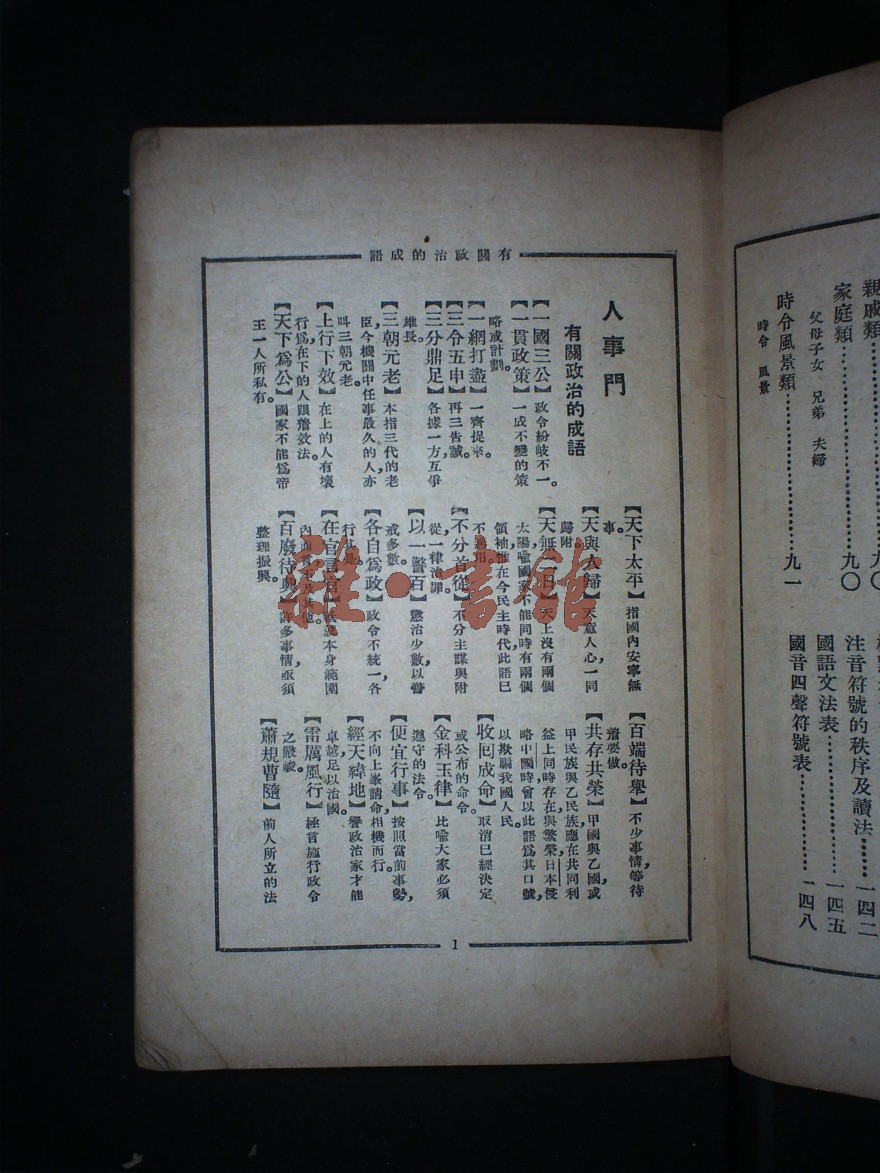 有關政治的成語
人事門
有關政治的成語
【一國三公】政令紛岐不一。
【一貫政策】一成不變的策
略或計劃。
【一網打盡】一齊捉來。
【三令五申】再三告誡。
【三分鼎足】各據一方互爭
雄長。
【三朝元老】本指三代的老
臣，今機關中任事最久的人，亦
叫三朝元老。
【上行下效】在上的人有壞
行爲，在下的人跟着效法。
【天下爲公】國家不能爲帝
王一人所私有。
【天下太平】指國內安寧無
事。
【天與人歸】天意人心一同
歸附。
【天無二日】天上沒有兩個
太陽，喻國家不能同時有兩個
領袖，惟在今民主時代，此語已
不適用。
【不分首從】不分主謀與附
從，一律治罪。
【以一警百】懲治少數以警
戒多數。
【各自爲政】政令不統一，各
行其是。
【在官言官】本身範圍
內
【百廢待興】許多事情，亟須
整理振興。
【百端待舉】不少事情，等待
着要做。
【共存共榮】甲國與乙國或
甲民族與乙民族應在共同利
益上同時存在與繁榮，日本侵
略中國時曾以此語爲其口號，
以欺騙我國人民。
【收回成命】取消已經決定
或公布的命令。
【金科玉律】比喻大家必須
遵守的法令。
【便宜行事】按照當前事勢，
不向上峯請命，相機而行。
【經天緯地】譽政治家才能
卓越，足以治國。
【雷厲風行】極言施行政令
之嚴峻。
【蕭規曹隨】前人所立的法
1
親戚類 九〇
父母子女 兄弟 夫婦
家庭類 九〇
時令風景類 九一
時令 風景
注音符號的秩序及讀法 一四二
國語文法表 一四五
國音四聲符號表 一四八
雜·書館